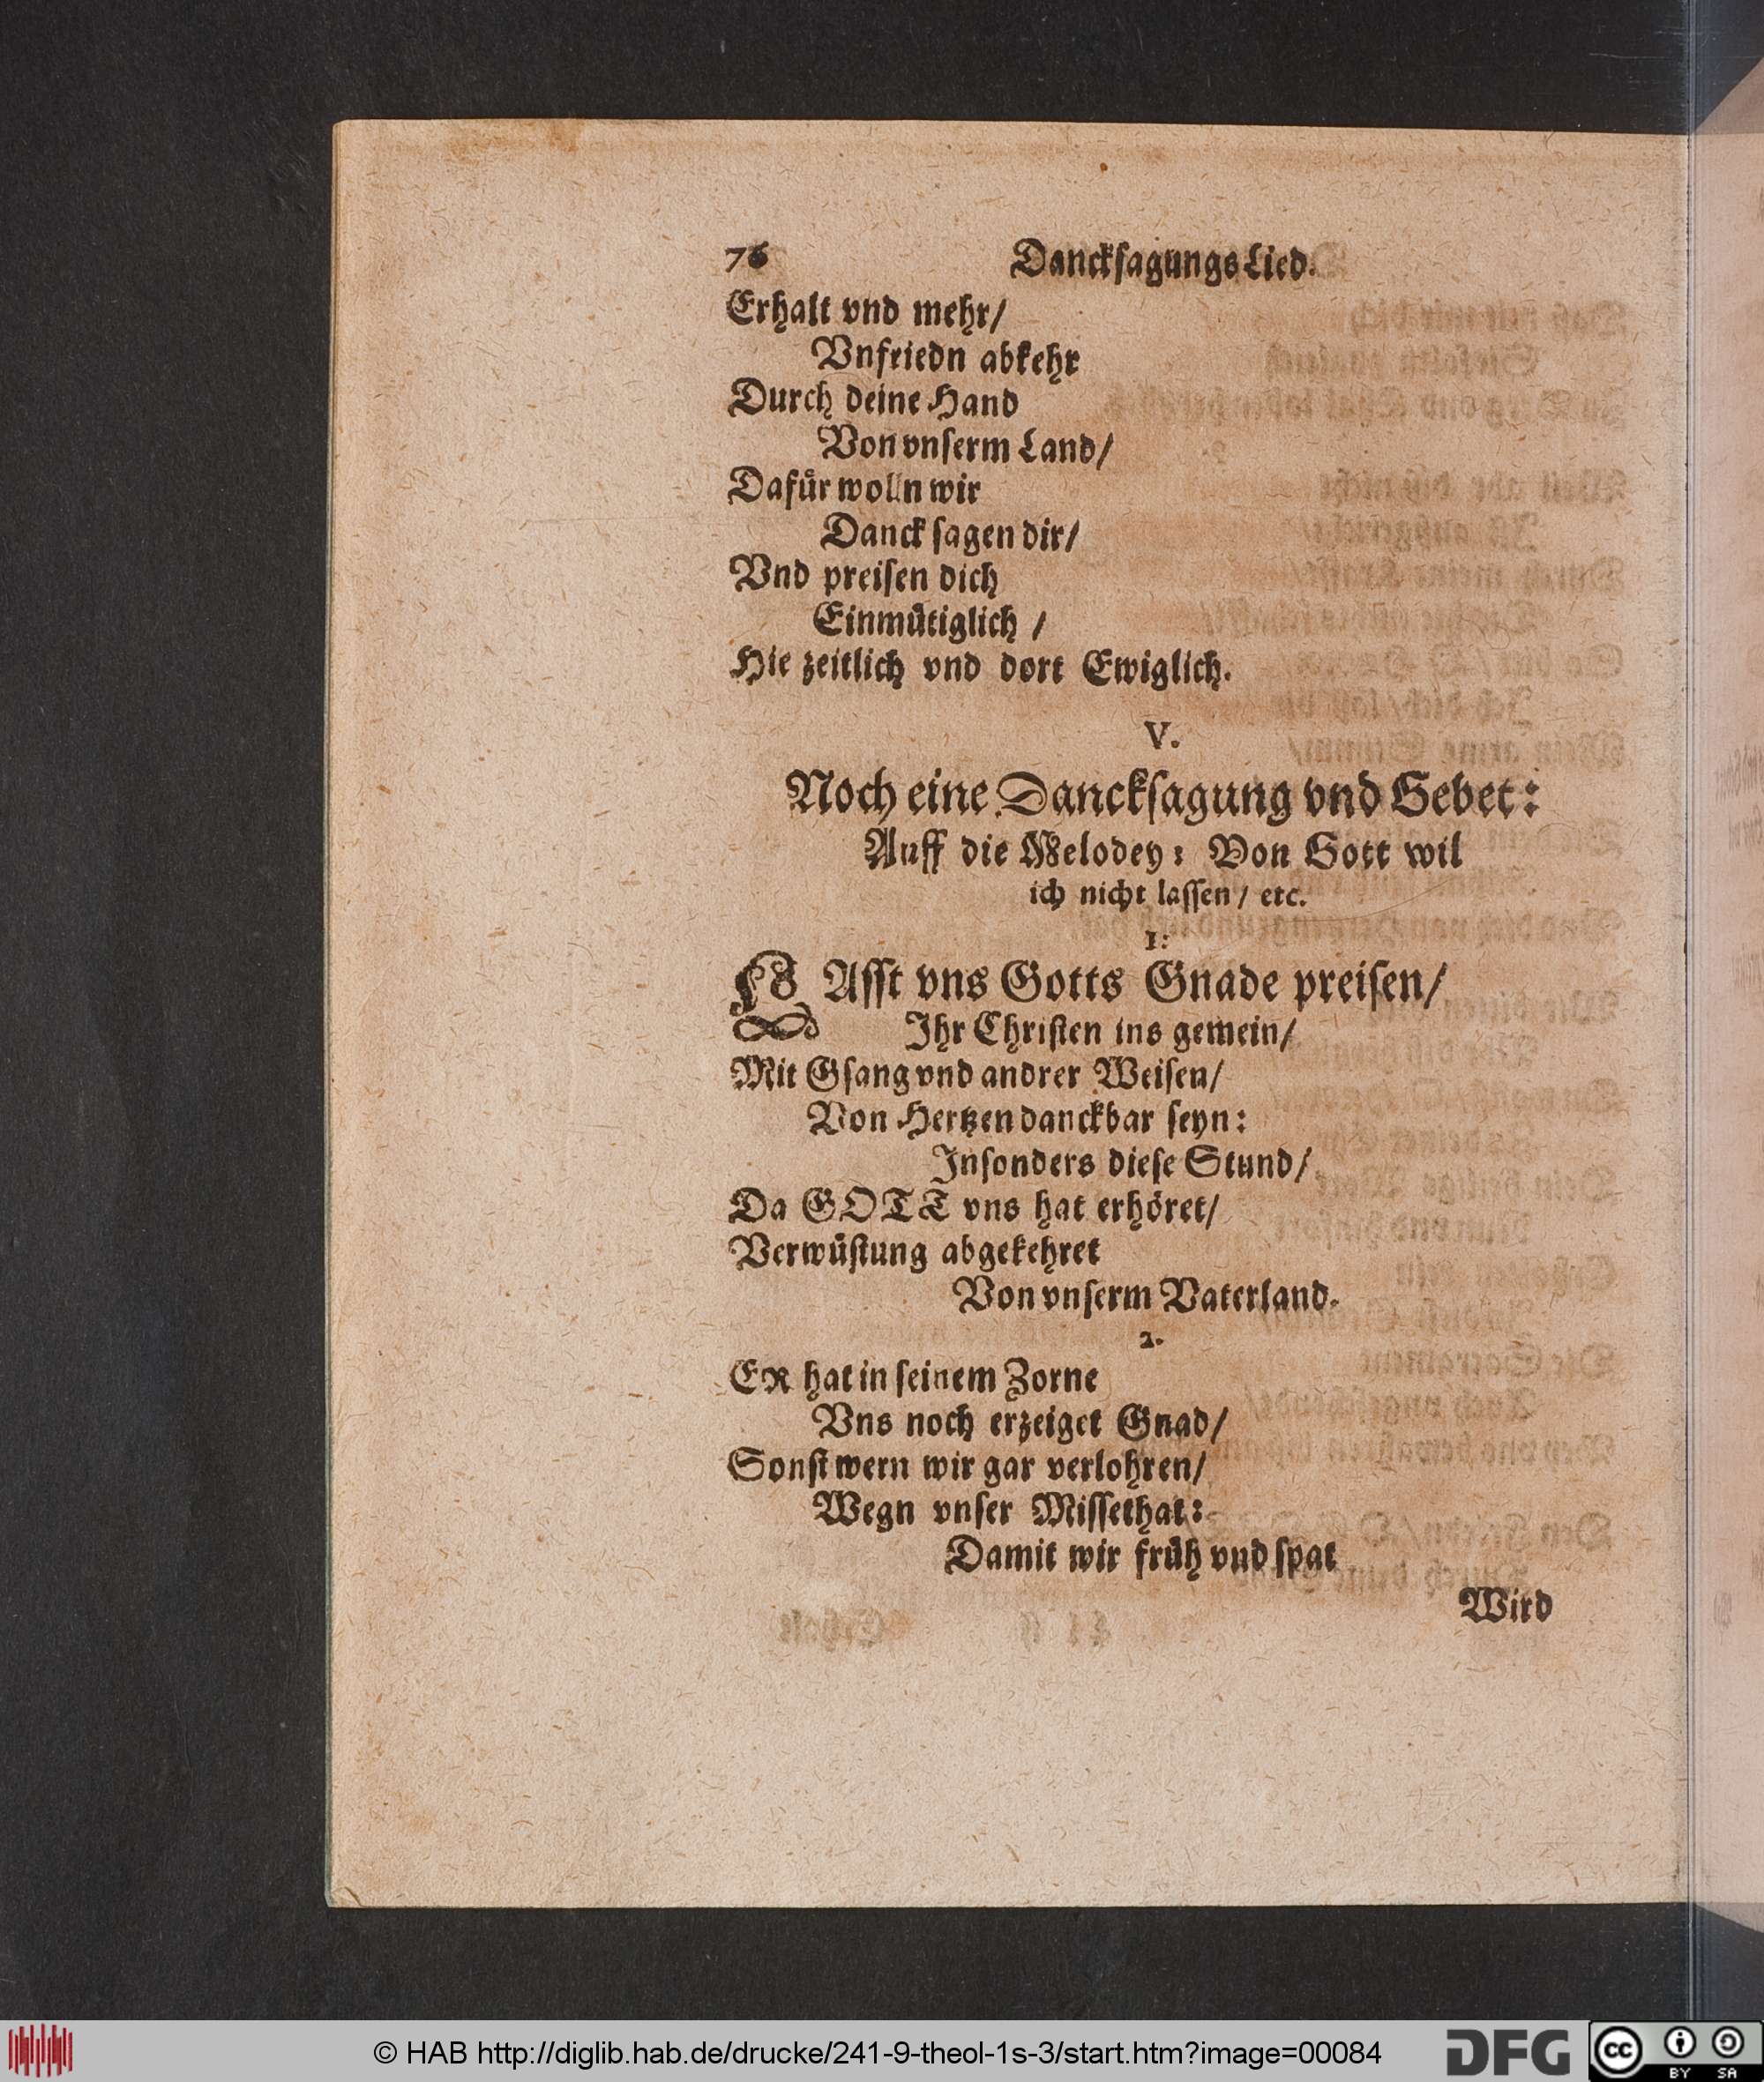 76 Danckſagungs Lied.
Erhalt vnd mehr/
Vnfriedn abkehr
Durch deine Hand
Von vnſerm Land/
Dafür wolln wir
Danck ſagen dir/
Vnd preiſen dich
Einmütiglich /
Hie zeitlich vnd dort Ewiglich.
V.
Noch eine Danckſagung vnd Gebet:
Auff die Melodey: Von Gott wil
ich nicht laſſen / etc.
1.
LAſſt vns Gotts Gnade preiſen/
Ihr Chriſten ins gemein/
Mit Gſang vnd andrer Weiſen/
Von Hertzen danckbar ſeyn:
Inſonders dieſe Stund/
Da GOTT vns hat erhöret/
Verwüſtung abgekehret
Von vnſerm Vaterland.
2.
ER hat in ſeinem Zorne
Vns noch erzeiget Gnad/
Sonſt wern wir gar verlohren/
Wegn vnſer Miſſethat:
Damit wir früh vnd ſpat
Wird
© HAB http://diglib.hab.de/drucke/241-9-theol-1s-3/start.htm?image=00084
DFG
cc BY SA